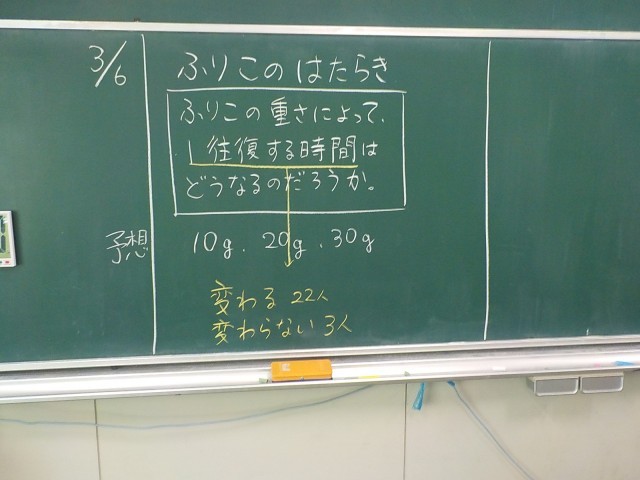 3/6
ふりこのはたらき
ふりこの重さによって、
1往復する時間は
どうなるのだろうか。
予想
10g、20g、30g
変わる 22人
変わらない 3人